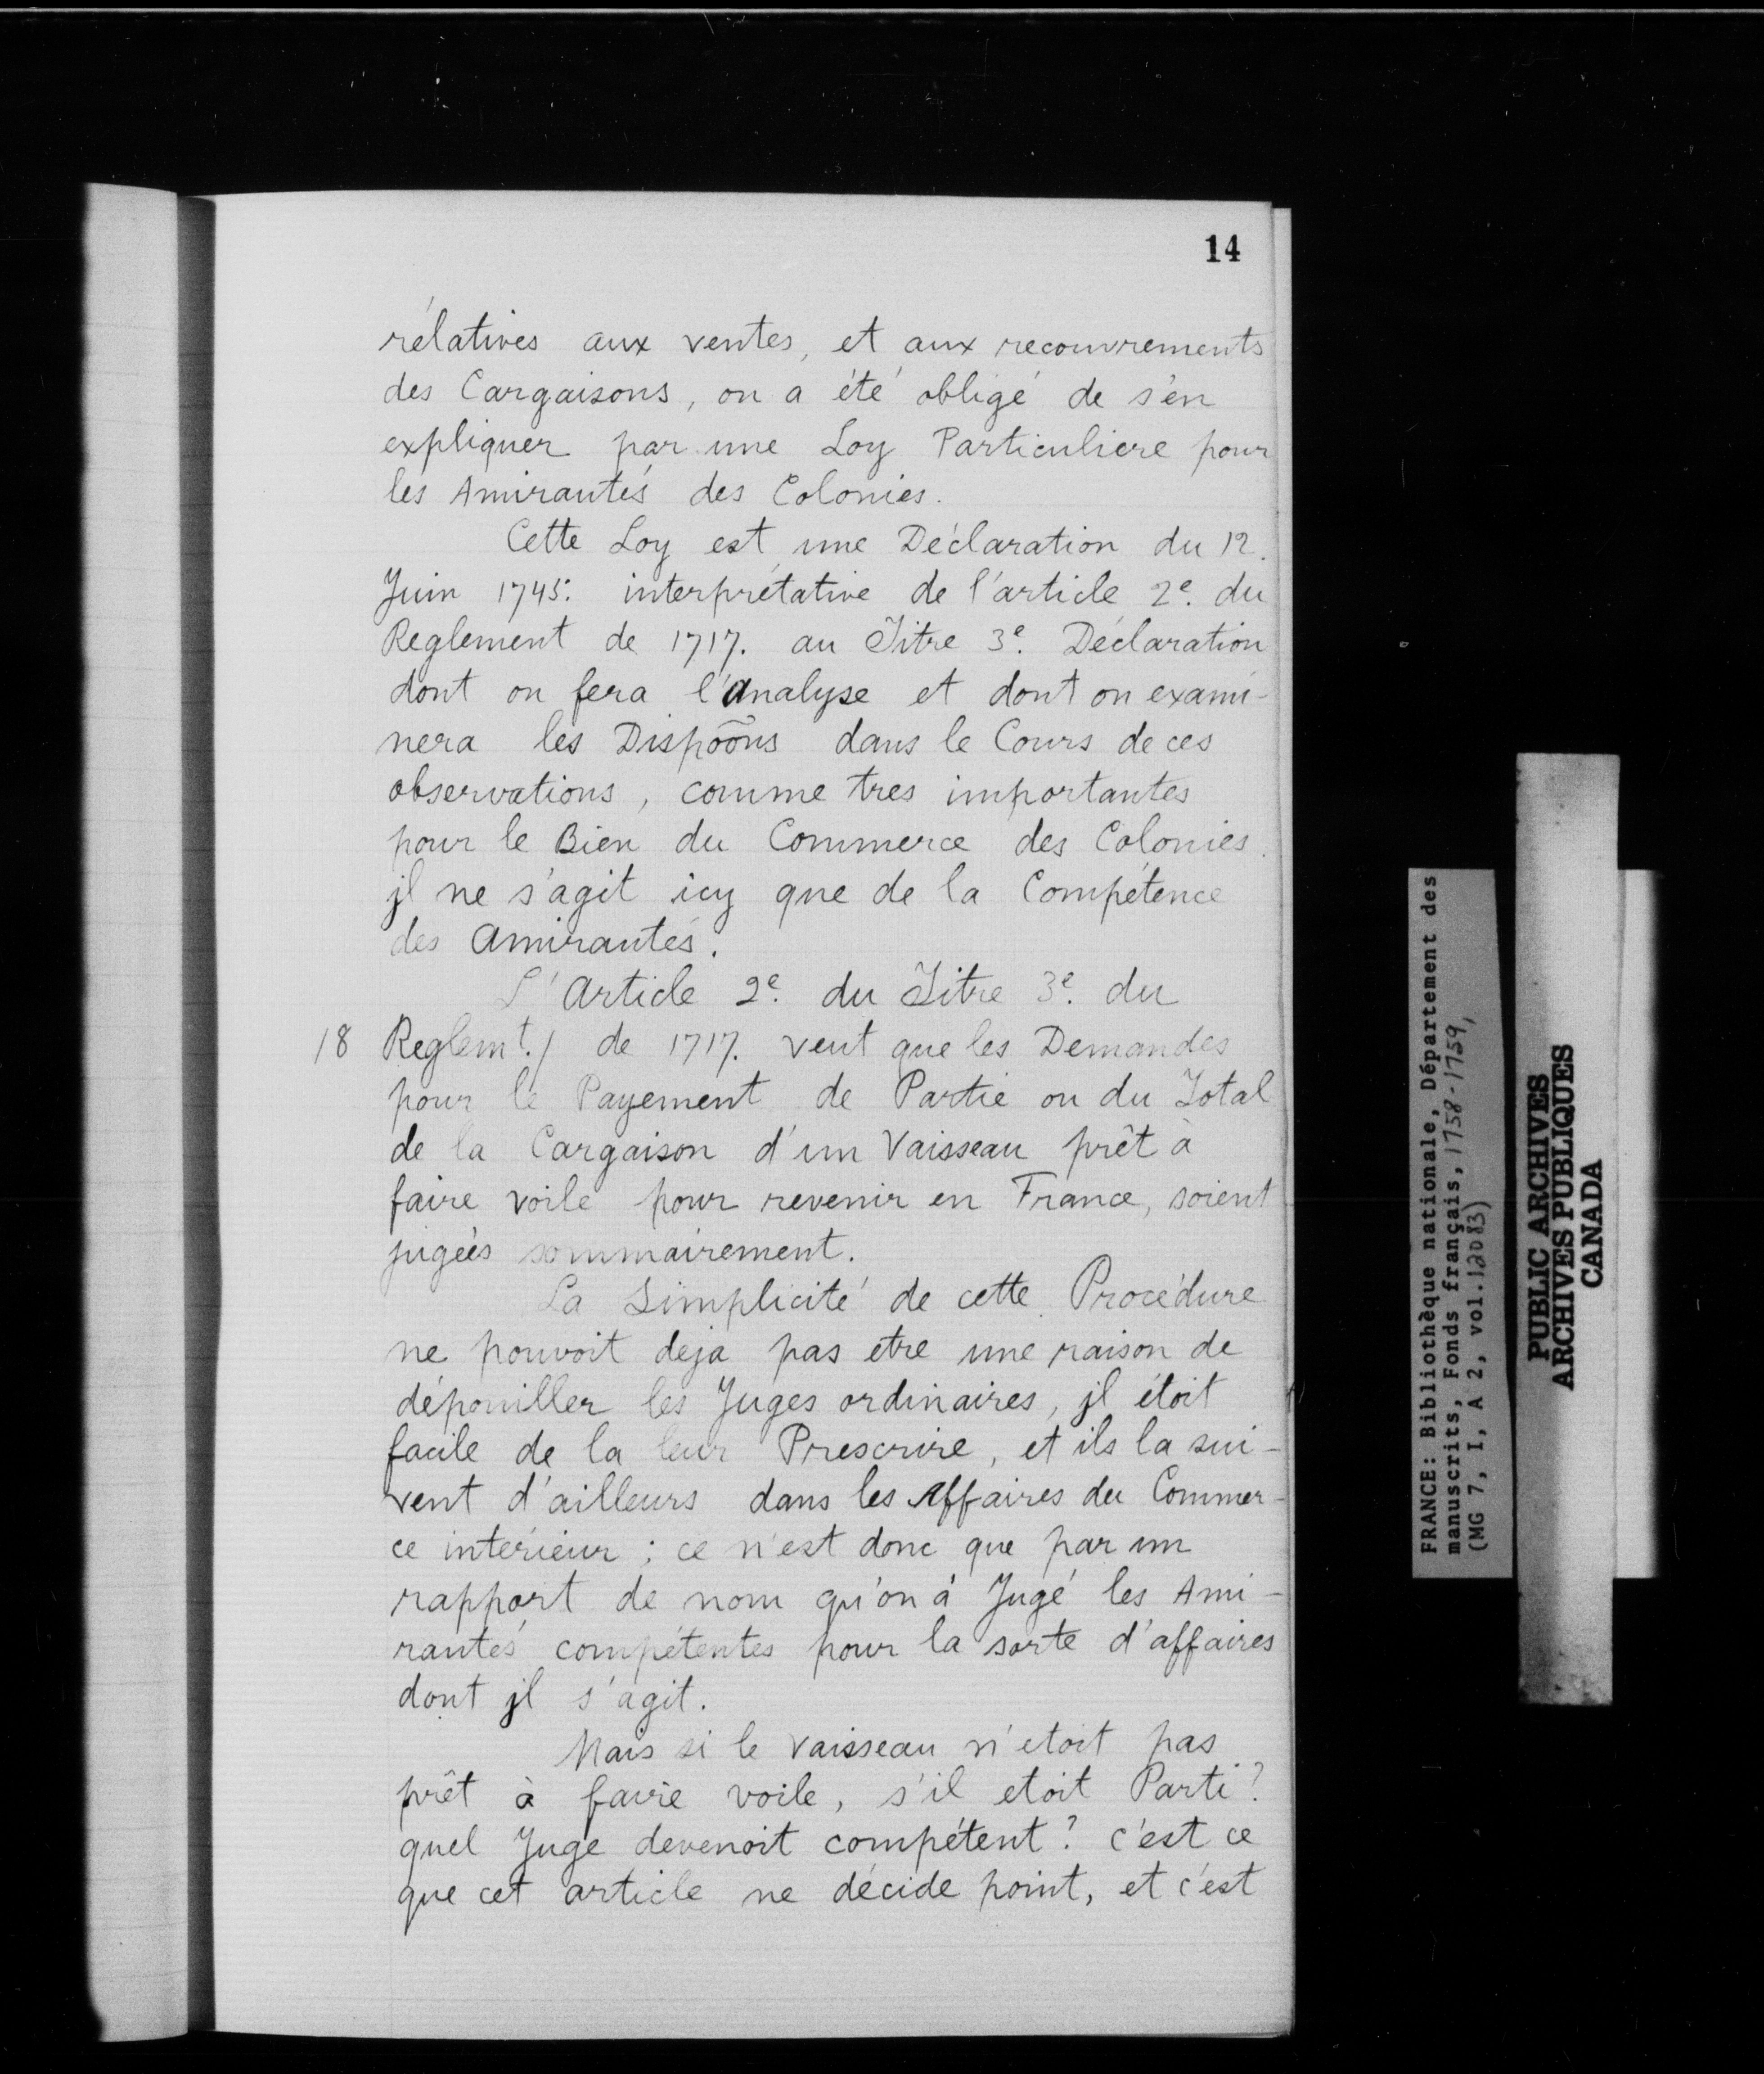 14
rélatives aux ventes, et aux recouvrements
des Cargaisons, on a été obligé de s'en
expliquer par une Loy Particuliere pour
les Amirautés des Colonies.
Cette Loy est une Déclaration du 12.
Juin 1745. interprétative de l'article 2e. du
Reglement de 1717. au Titre 3e. Déclaration
dont on fera l'analyse et dont on exami-
nera les Dispõõns dans le Cours de ces
observations, comme tres importantes
pour le Bien du Commerce des Colonies.
jl ne s'agit icy que de la Compétence
des Amirautés.
L'Article 2e. du Titre 3e. du
18 Reglemt./ de 1717. veut que les Demandes
pour le Payement de Partie ou du Total
de la Cargaison d'un Vaisseau prêt à
faire voile pour revenir en France, soient
jugées sommairement.
La Simplicité de cette Procédure
ne pouvoit deja pas etre une raison de
dépouiller les Juges ordinaires, jl étoit
facile de la leur Prescrire, et ils la sui-
vent d'ailleurs dans les Affaires du Commer-
ce interieur ; ce n'est donc que par un
rapport de nom qu'on à Jugé les Ami-
rautés compétentes pour la sorte d'affaires
dont jl s'agit.
Mais si le Vaisseau n'etoit pas
prêt à faire voile, s'il etoit Parti ?
quel Juge devenoit compétent ? c'est ce
que cet article ne décide point, et c'est
FRANCE: Bibliothèque nationale, Département des
manuscrits, Fonds français, 1758-1759,
(MG 7, I, A 2, vol. 12083)
PUBLIC ARCHIVES
ARCHIVES PUBLIQUES
CANADA